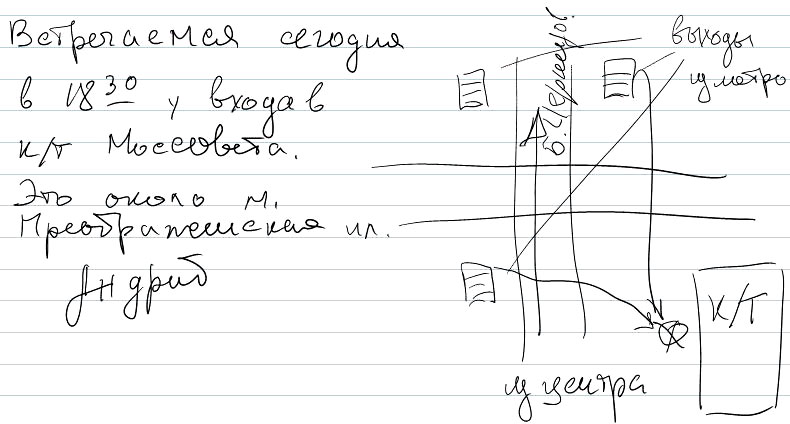 Встречаемся сегодня
в 18 30 у входа в
к/т Моссовета.
Это около м.
Преображенская пл.
Андрей
выходы
из метро
Б. Черкизов.
К/Т
из центра